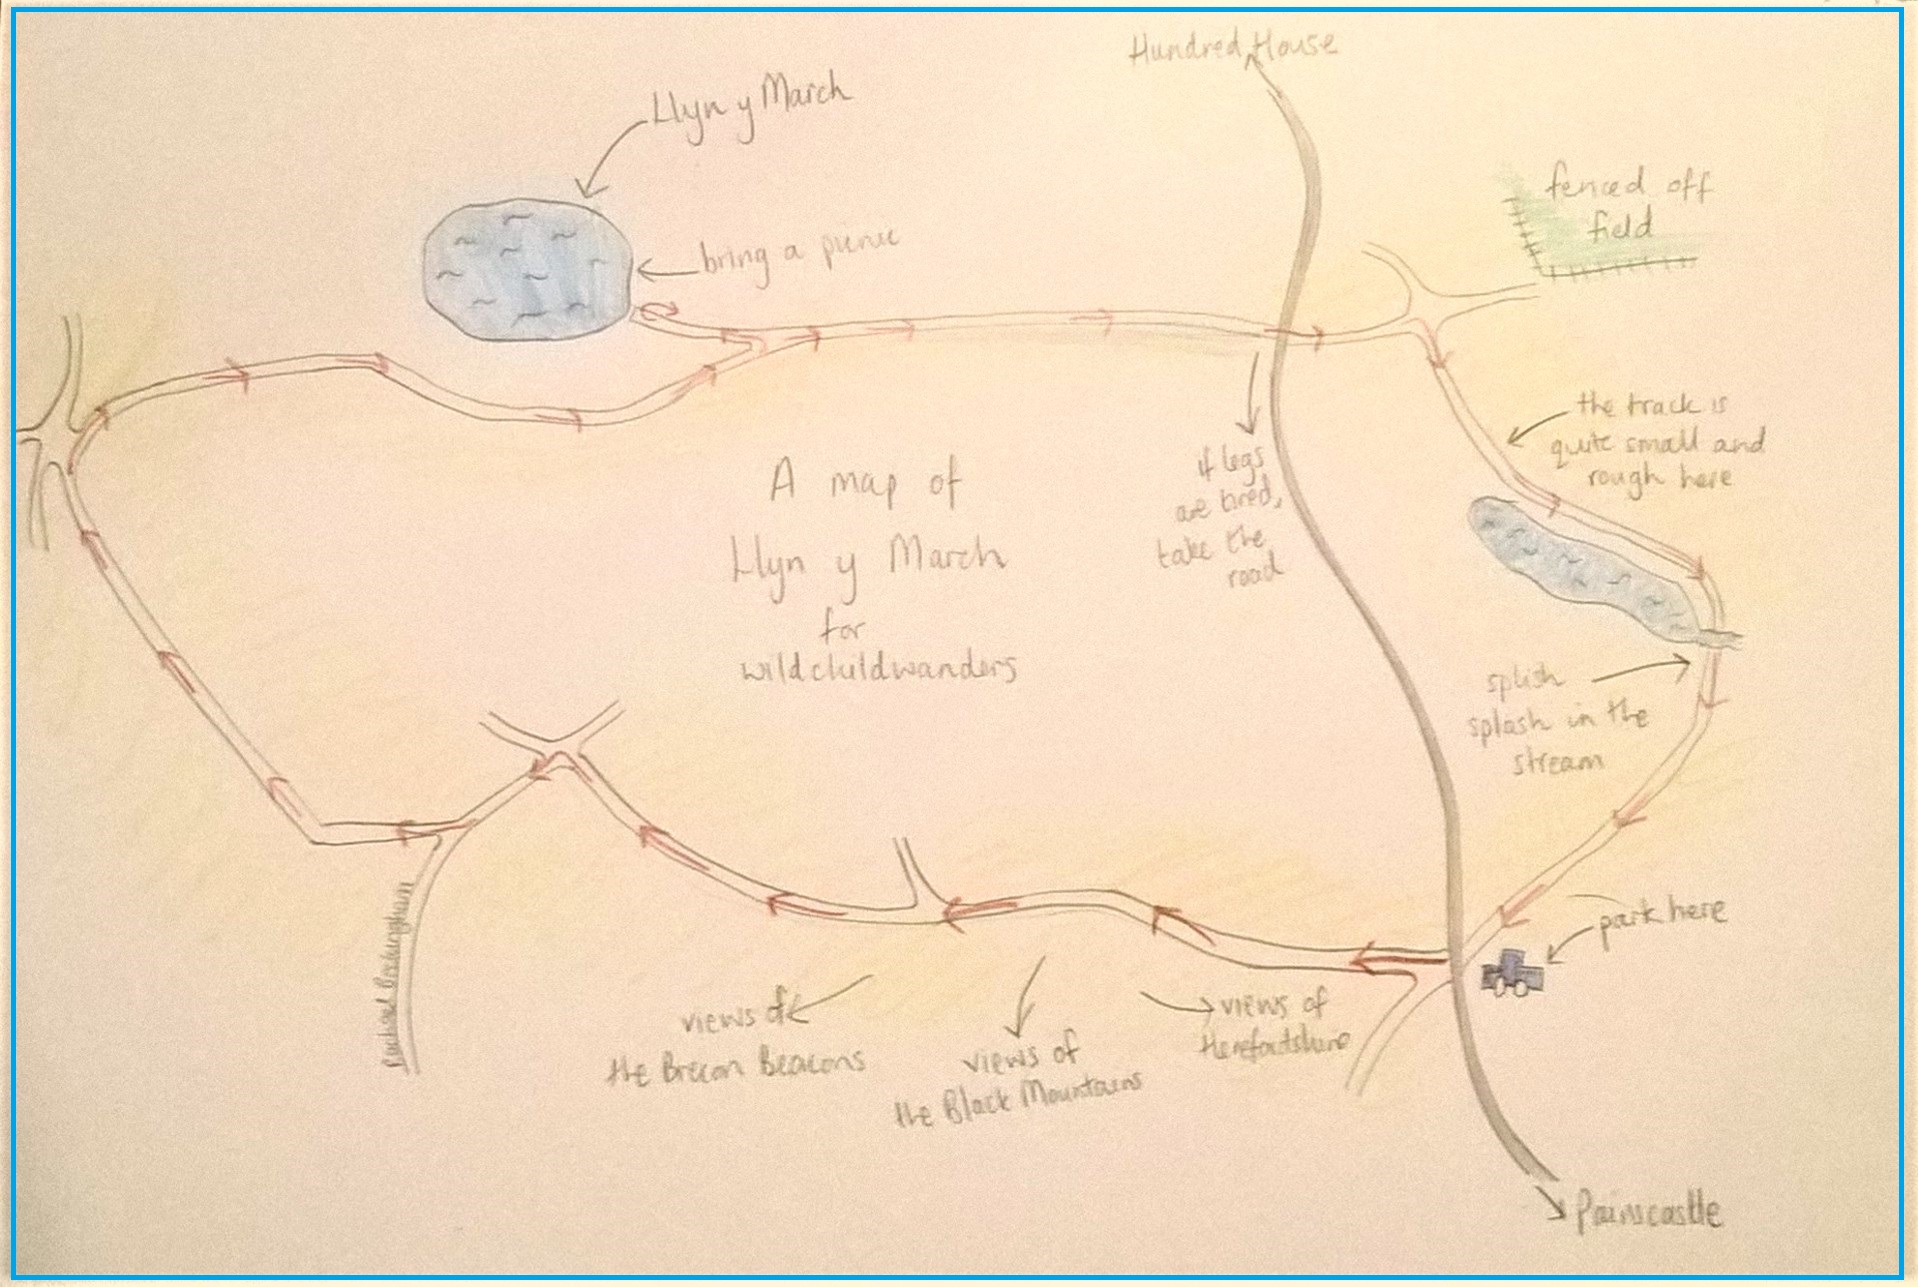 Hundred House
Llyn y March
bring a picnic
fenced off
field
the track is
quite small and
rough here
if legs
are tired,
take the
road
A map of
Llyn y March
for
wildchildwanders
splish
splash in the
stream
park here
views of
the Brecon Beacons
views of
the Black Mountains
views of
Herefordshire
Painscastle